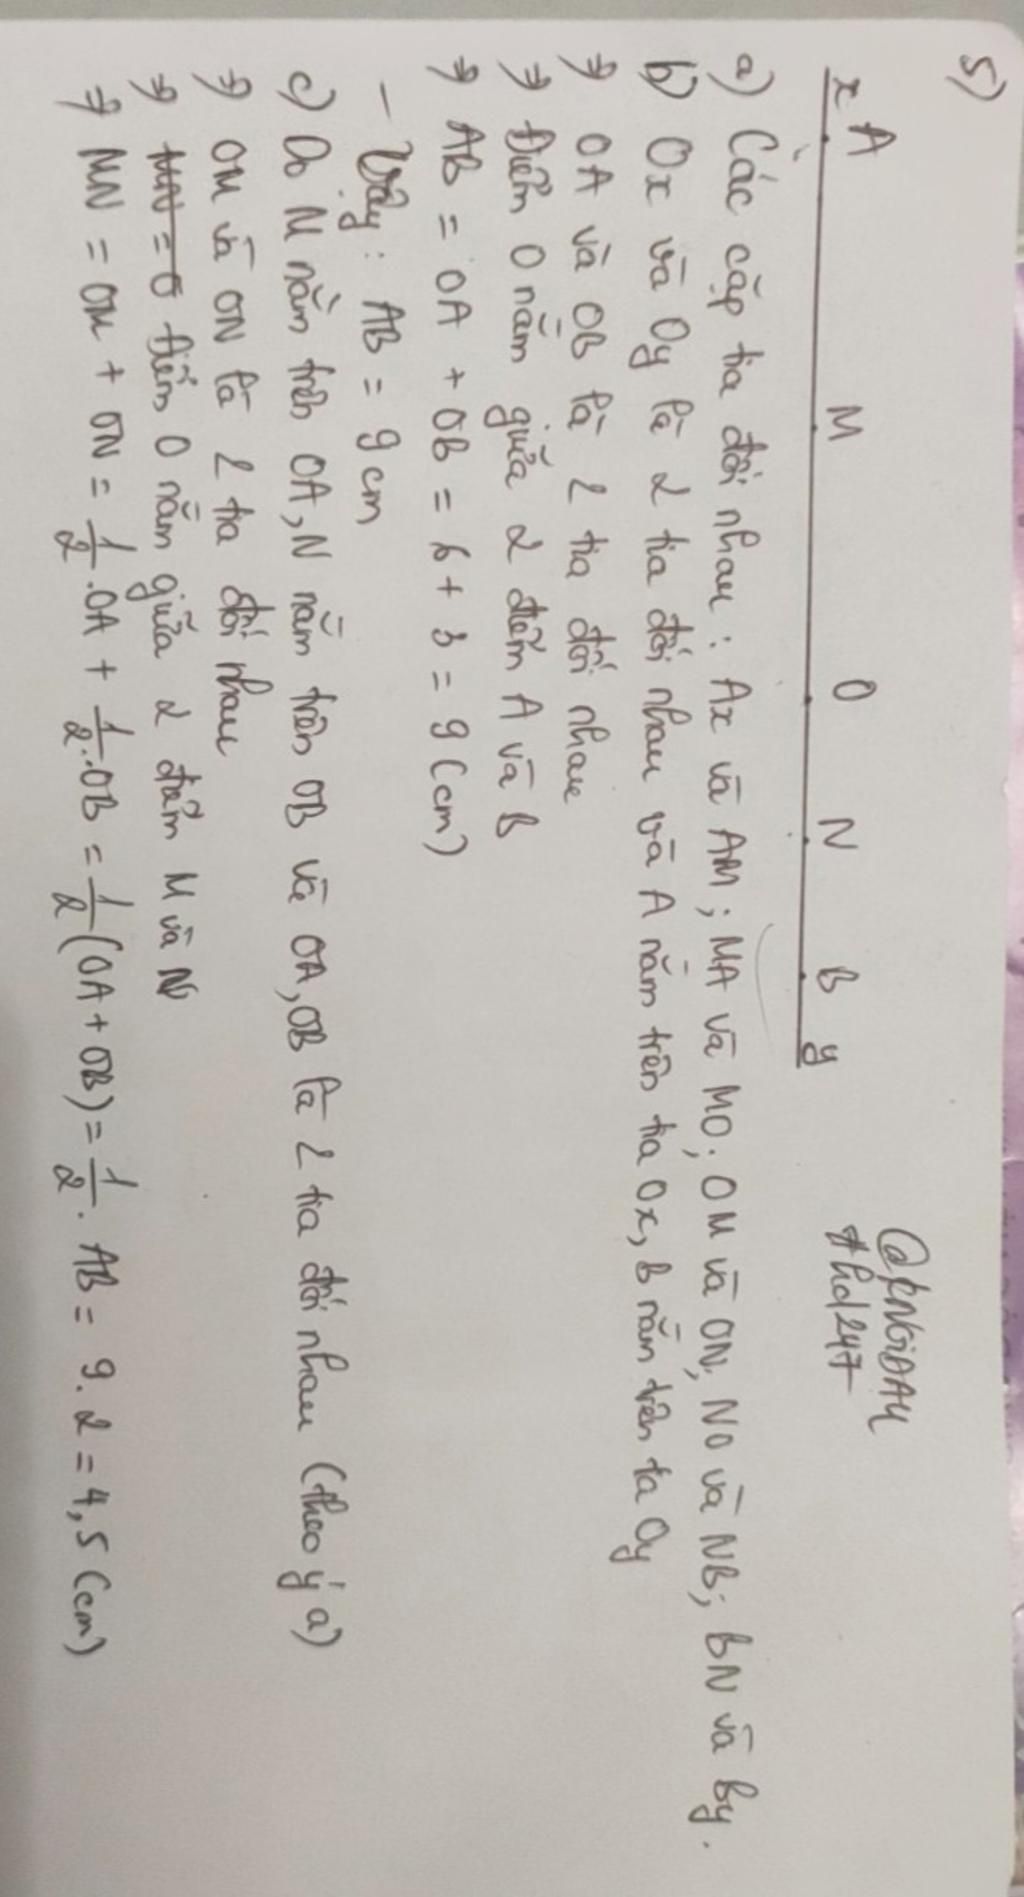 5)
x A M O N B y
@KNGiDAY
#hd247
a) Các cặp tia đối nhau: Ax và AM; MA và MO; OM và ON; NO và NB; BN và By.
b) Ox và Oy là 2 tia đối nhau và A nằm trên tia Ox, B nằm trên ta Oy
=> OA và OB là 2 tia đối nhau
=> Điểm O nằm giữa 2 điểm A và B
=> AB = OA + OB = 6 + 3 = 9 (cm)
- Vậy: AB = 9 cm
c) Do M nằm trên OA, N nằm trên OB và OA, OB là 2 tia đối nhau (theo ý a)
=> OM và ON là 2 tia đối nhau
=> MN = O điểm O nằm giữa 2 điểm M và N
=> MN = OM + ON = 1/2 . OA + 1/2 . OB = 1/2 (OA + OB) = 1/2 . AB = 9 . 2 = 4,5 (cm)